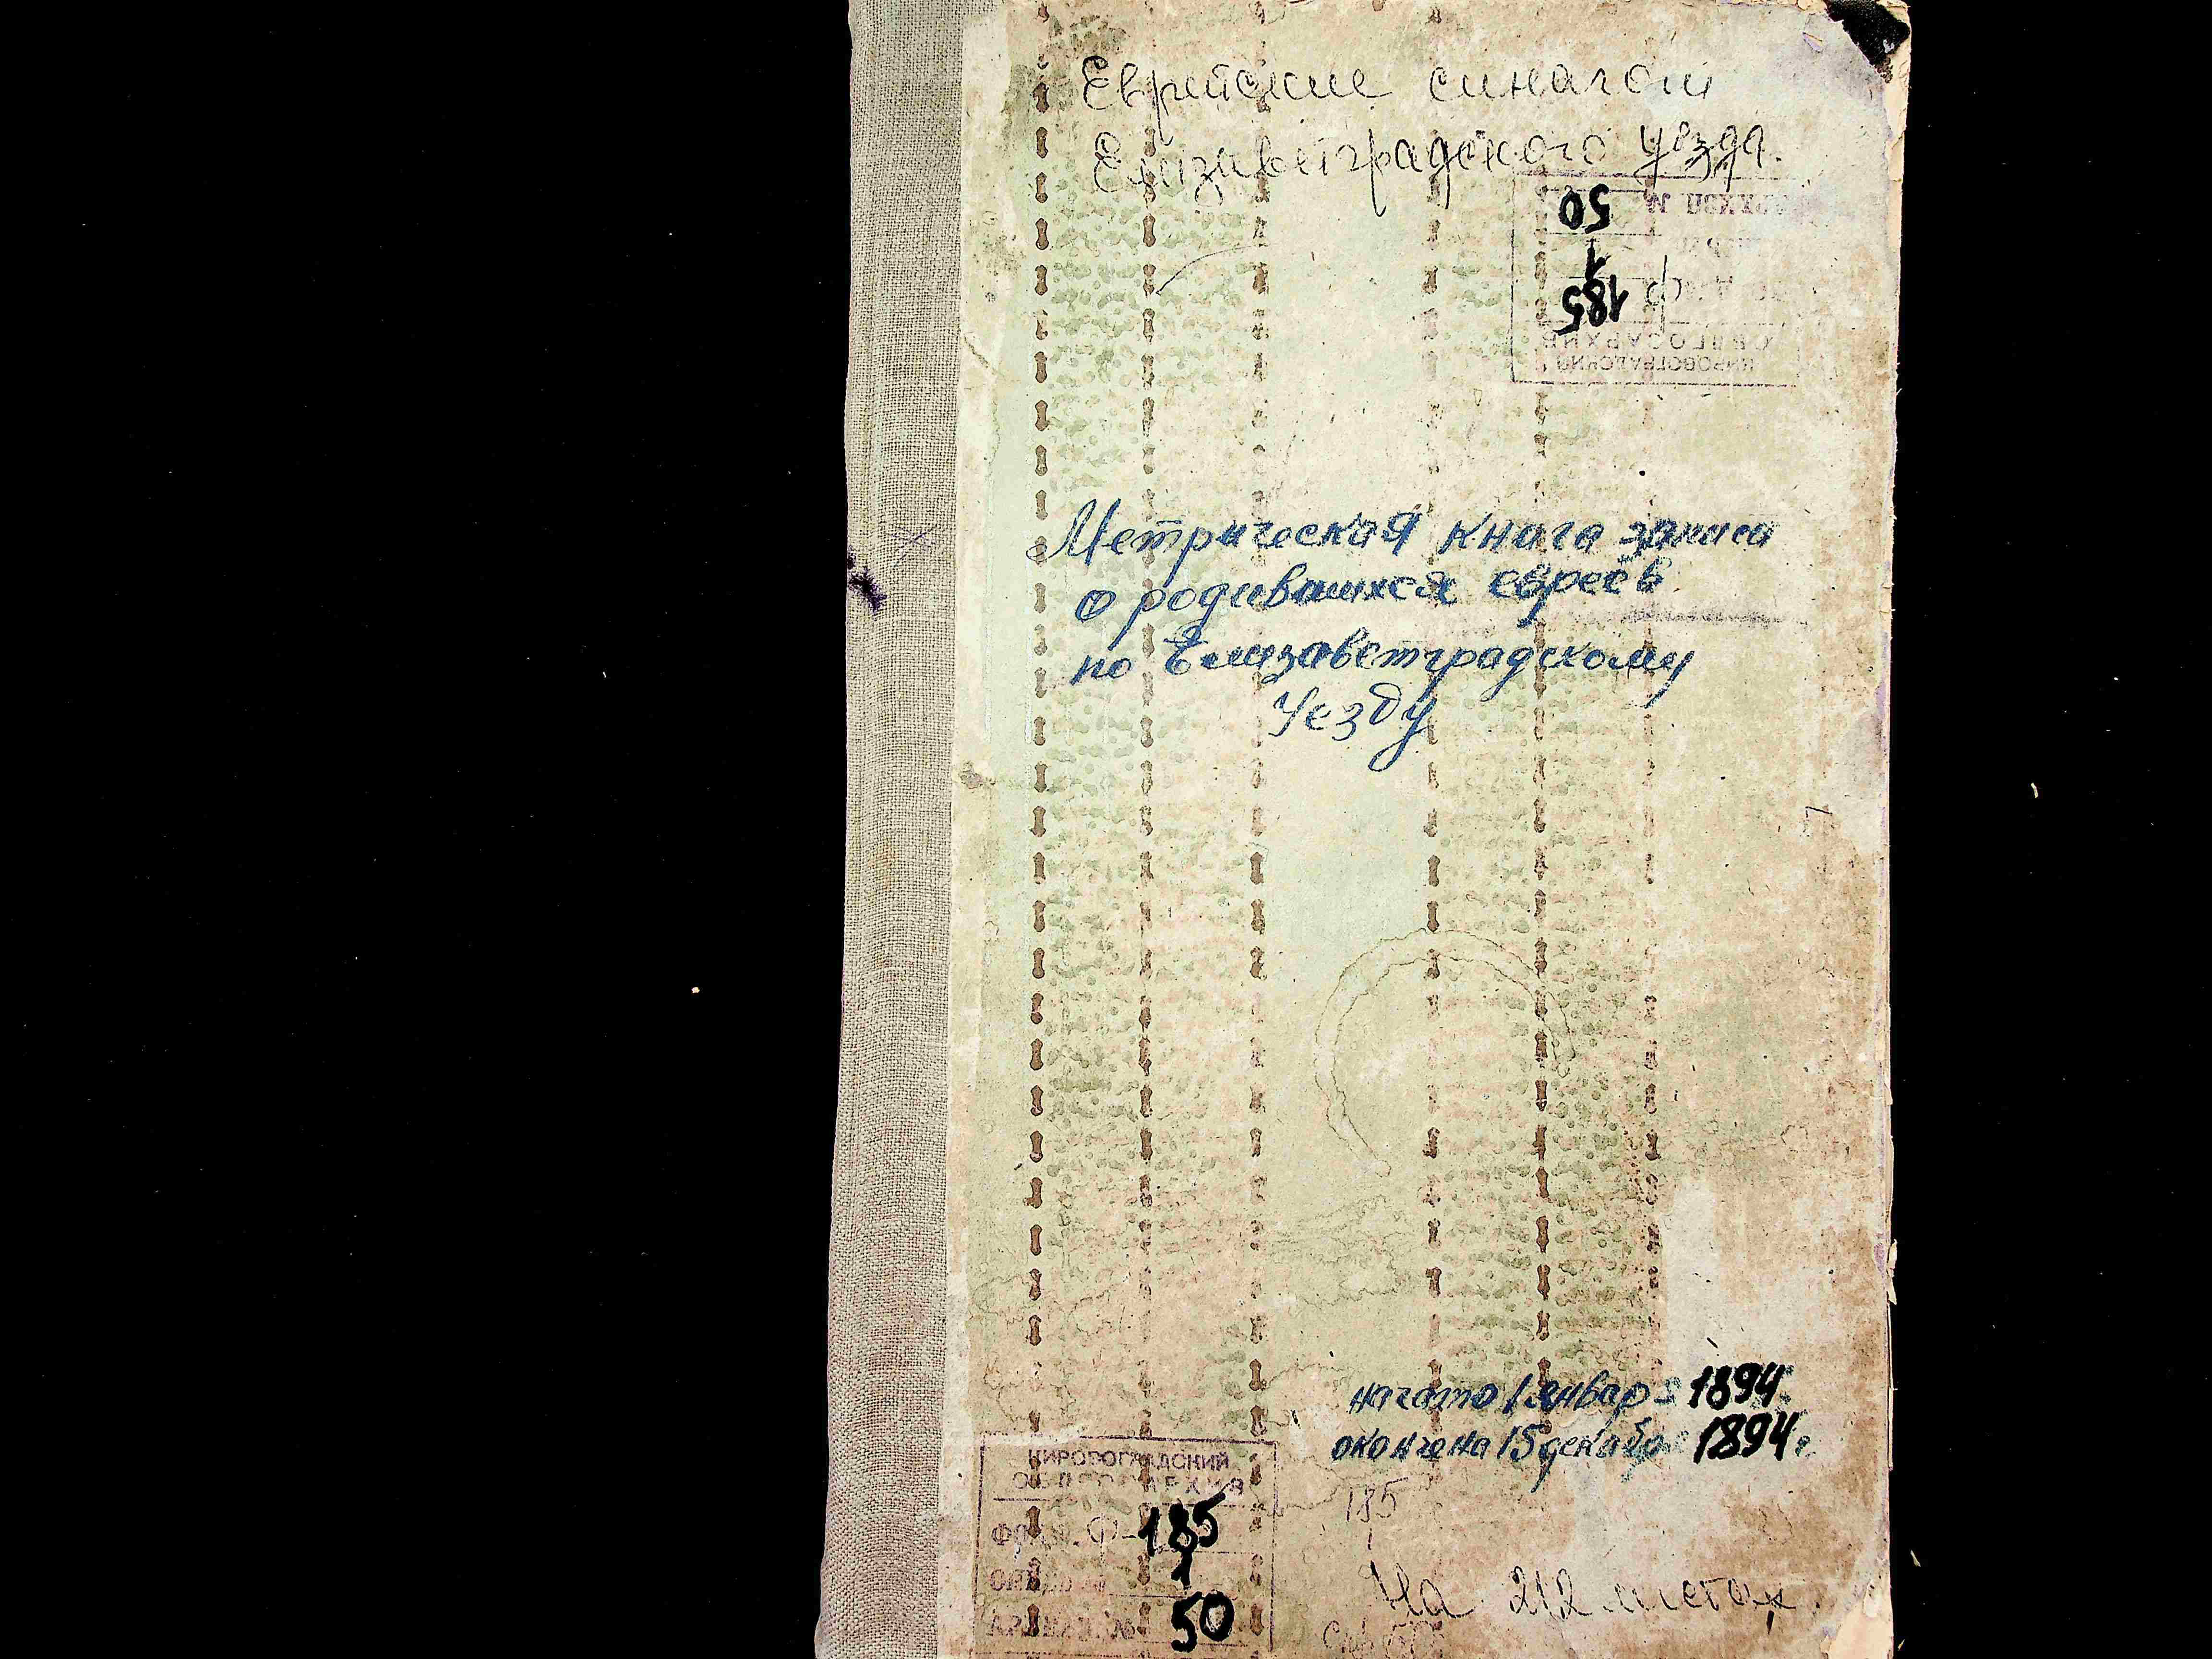 Еврейские синагоги
Елизаветградского уезда.
АРХИВ № 50
1
Ф 185
ОБЛГОСАРХИВ
КИРОВОГРАДСКИЙ
Метрическая книга записи
о родившихся евреев
по Елизаветградскому
уезду
начато 1 январ 1894.
окончена 15 декабр 1894г
КИРОВОГРАДСКИЙ
ОБЛГОСАРХИВ
ФОНД Ф-185
ОПИСЬ 1
АРХИВ № 50
185
1
На 212 листах.